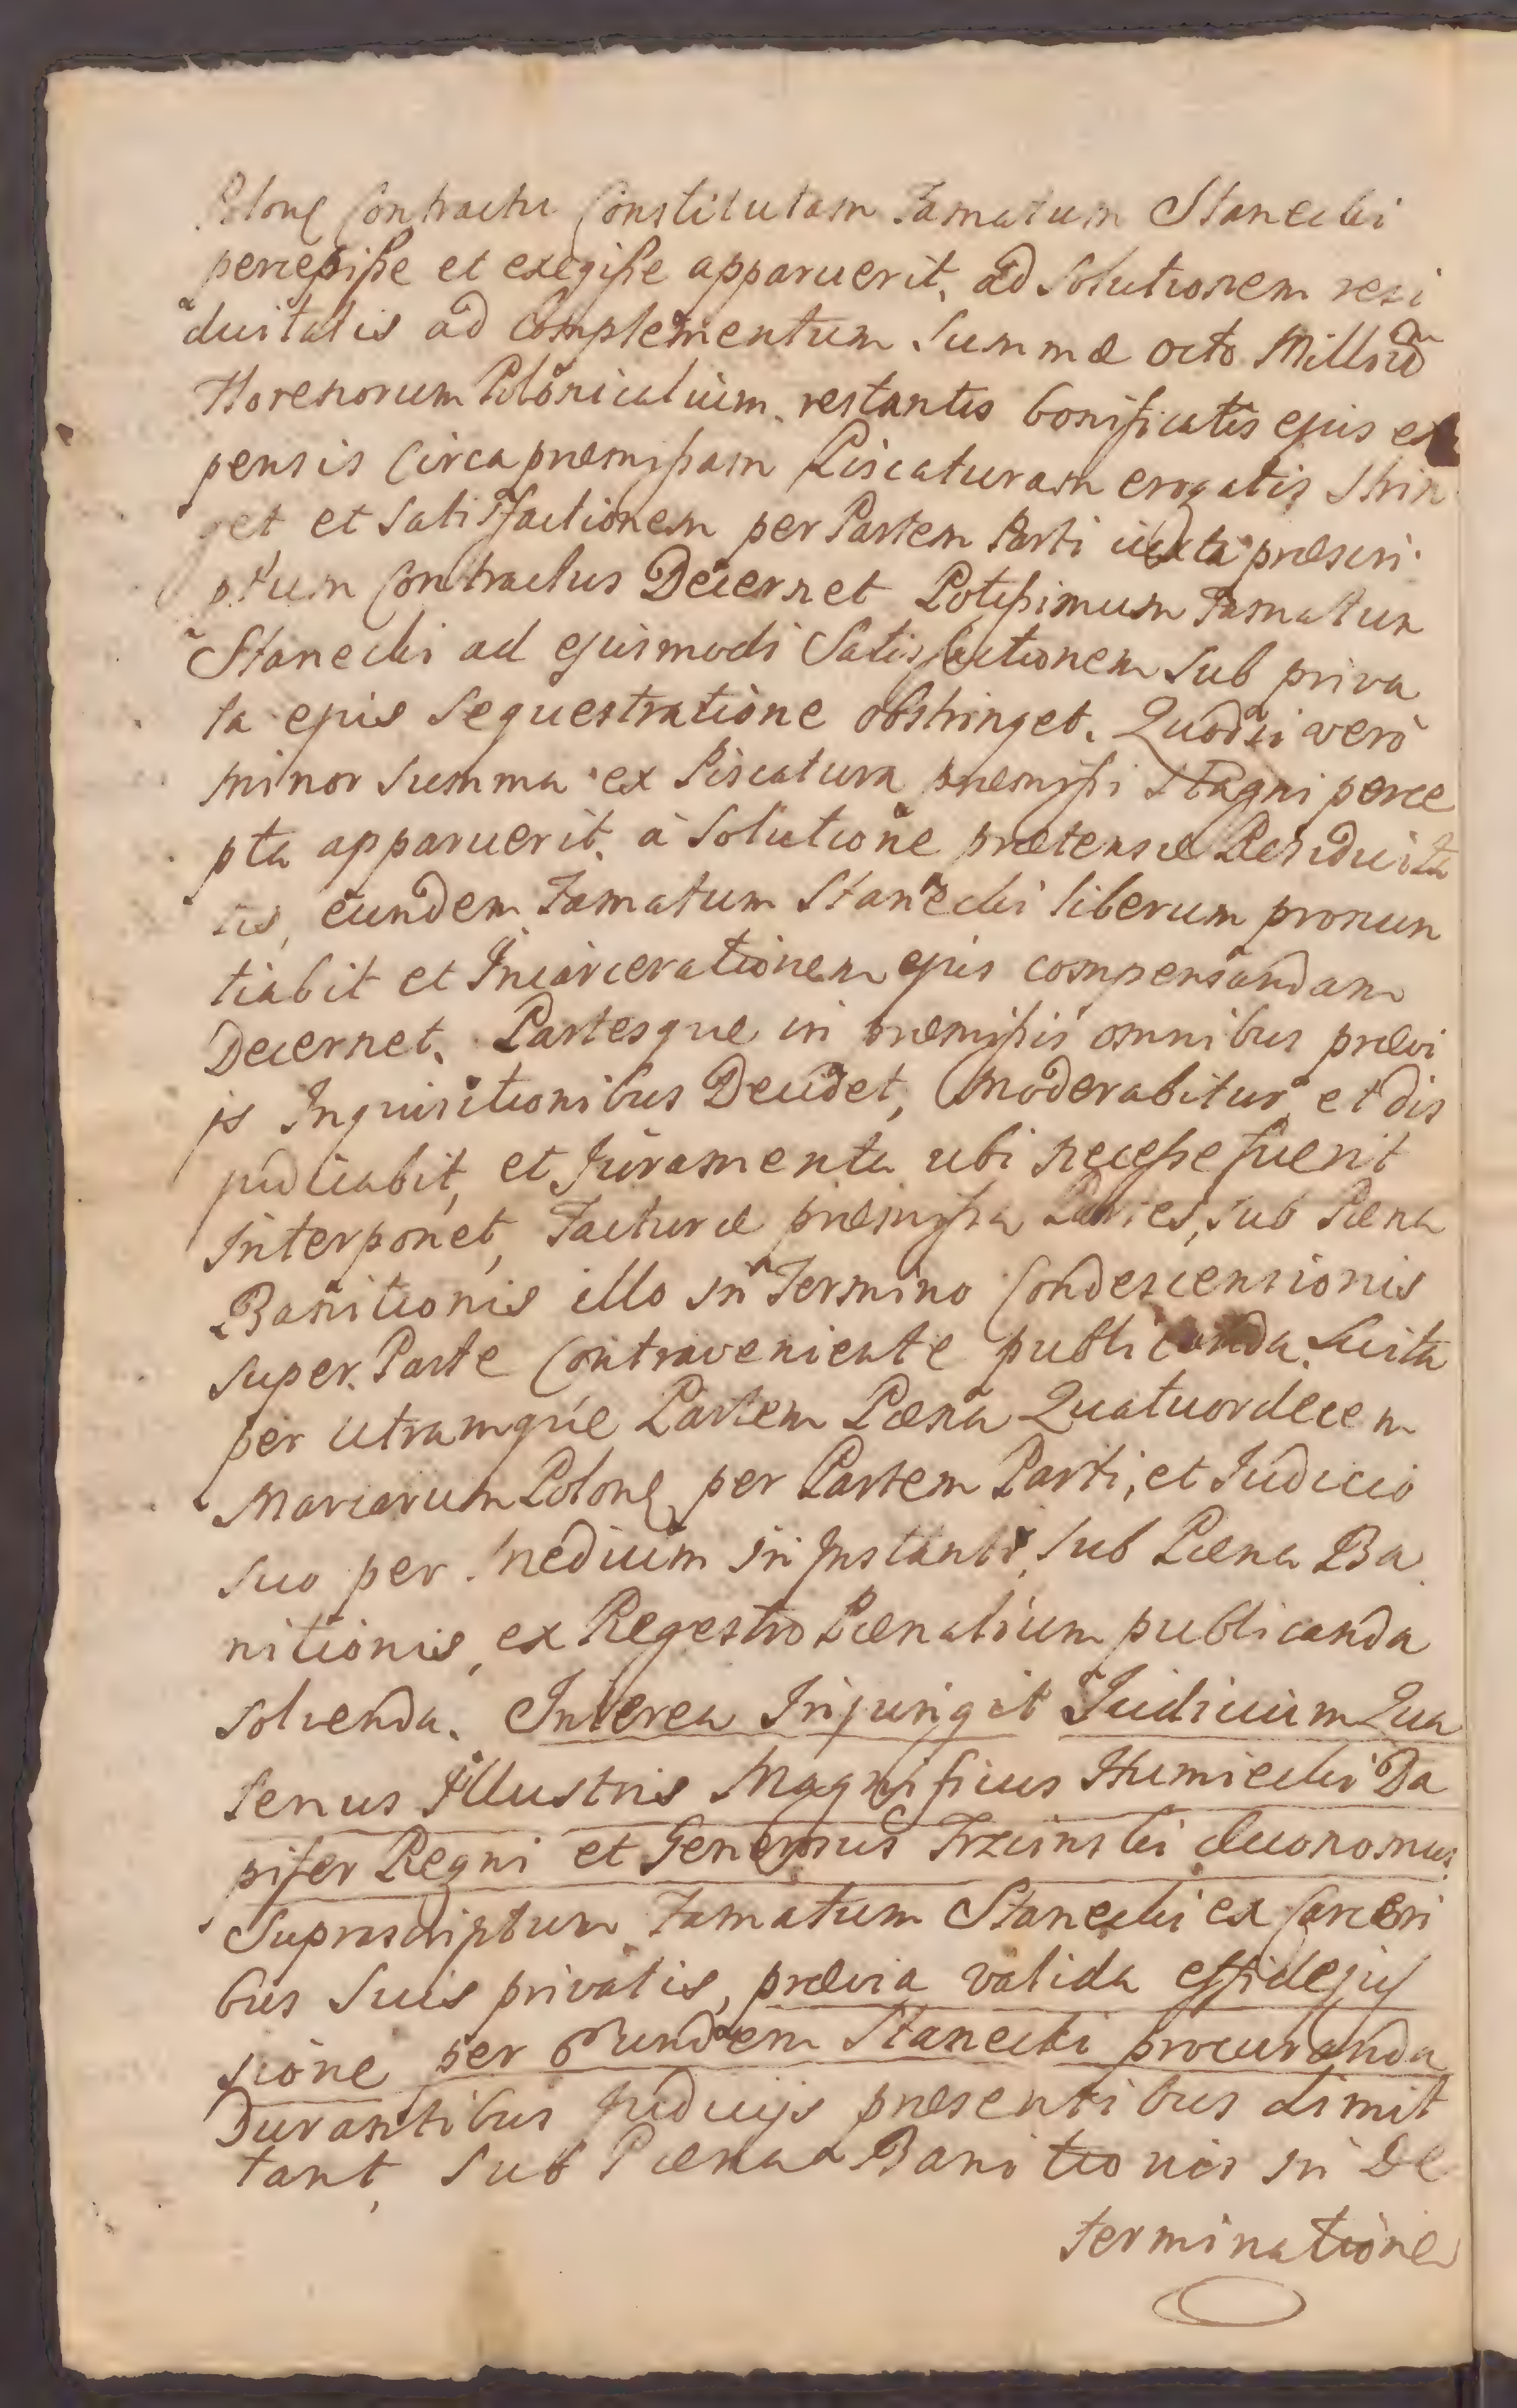 Polonę Contractu Constitutam Famatum Stanecki
percepiße et exegiße apparuerit, ad Solutionem resi
duitatis ad Complementum Summæ octo Milliũ
Florenorum Polonicalium restantis bonificatis ejus ex
pensis Circa præmißam Piscaturam erogatis Strin
get et Satisfactionem per Partem Parti iuxta præscri
ptum Contractus Decernet Potißimum Famatum
Stanecki ad ejusmodi Satisfactionem Sub priva
ta ejus Sequestratione obstringet. Quodsi verò
minor Summa ex Piscatura præmißi Stagni perce
pta apparuerit, à Solutione prætensæ Residuita
tis, eundem Famatum Stanecki liberum pronun
tiabit et Incarcerationem ejus compensandam
Decernet. Partesque in præmißis omnibus prævi
js Inquisitionibus Decidet, Moderabitur, et dis
judicabit, et Juramenta ubi neceße fuerit
interponet, Facturæ præmißa Partes, Sub Pæna
Banitionis illo in Termino Condescensionis
super Parte Contraveniente publicanda. Luita
per utramque Partem Pæna Quatuordecem
Marcarum Polonę per Partem Parti, et Judicio
suo per Medium in Instanti, Sub Pæna Ba
nitionis, ex Regestro Pænalium publicanda
solvenda. Interea Injungit Judicium Qua
tenus Illustris Magnificus Humiecki Da
pifer Regni et Generosus Trzcinski Æconomus
Suprascriptum Famatum Stanecki ex Carceri
bus Suis privatis, prævia valida effidejuſ
sione per Eundem Stanecki procuranda
Durantibus Judicijs præsentibus dimit
tant, Sub Pæna Banitionis in De
terminatione